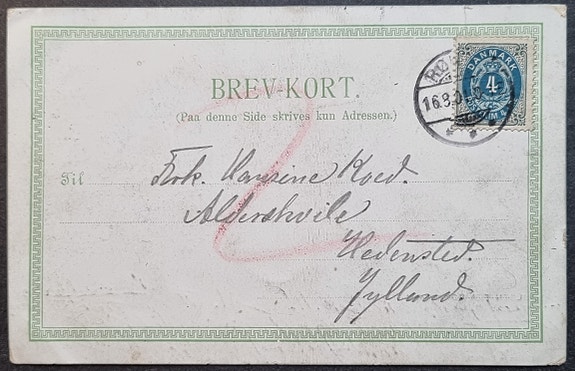 BREV-KORT.
(Paa denne Side skrives kun Adressen.)
DANMARK
4
16.8
Til Frk. Hansine Koed.
Aldershvile
Hedensted.
Jylland.